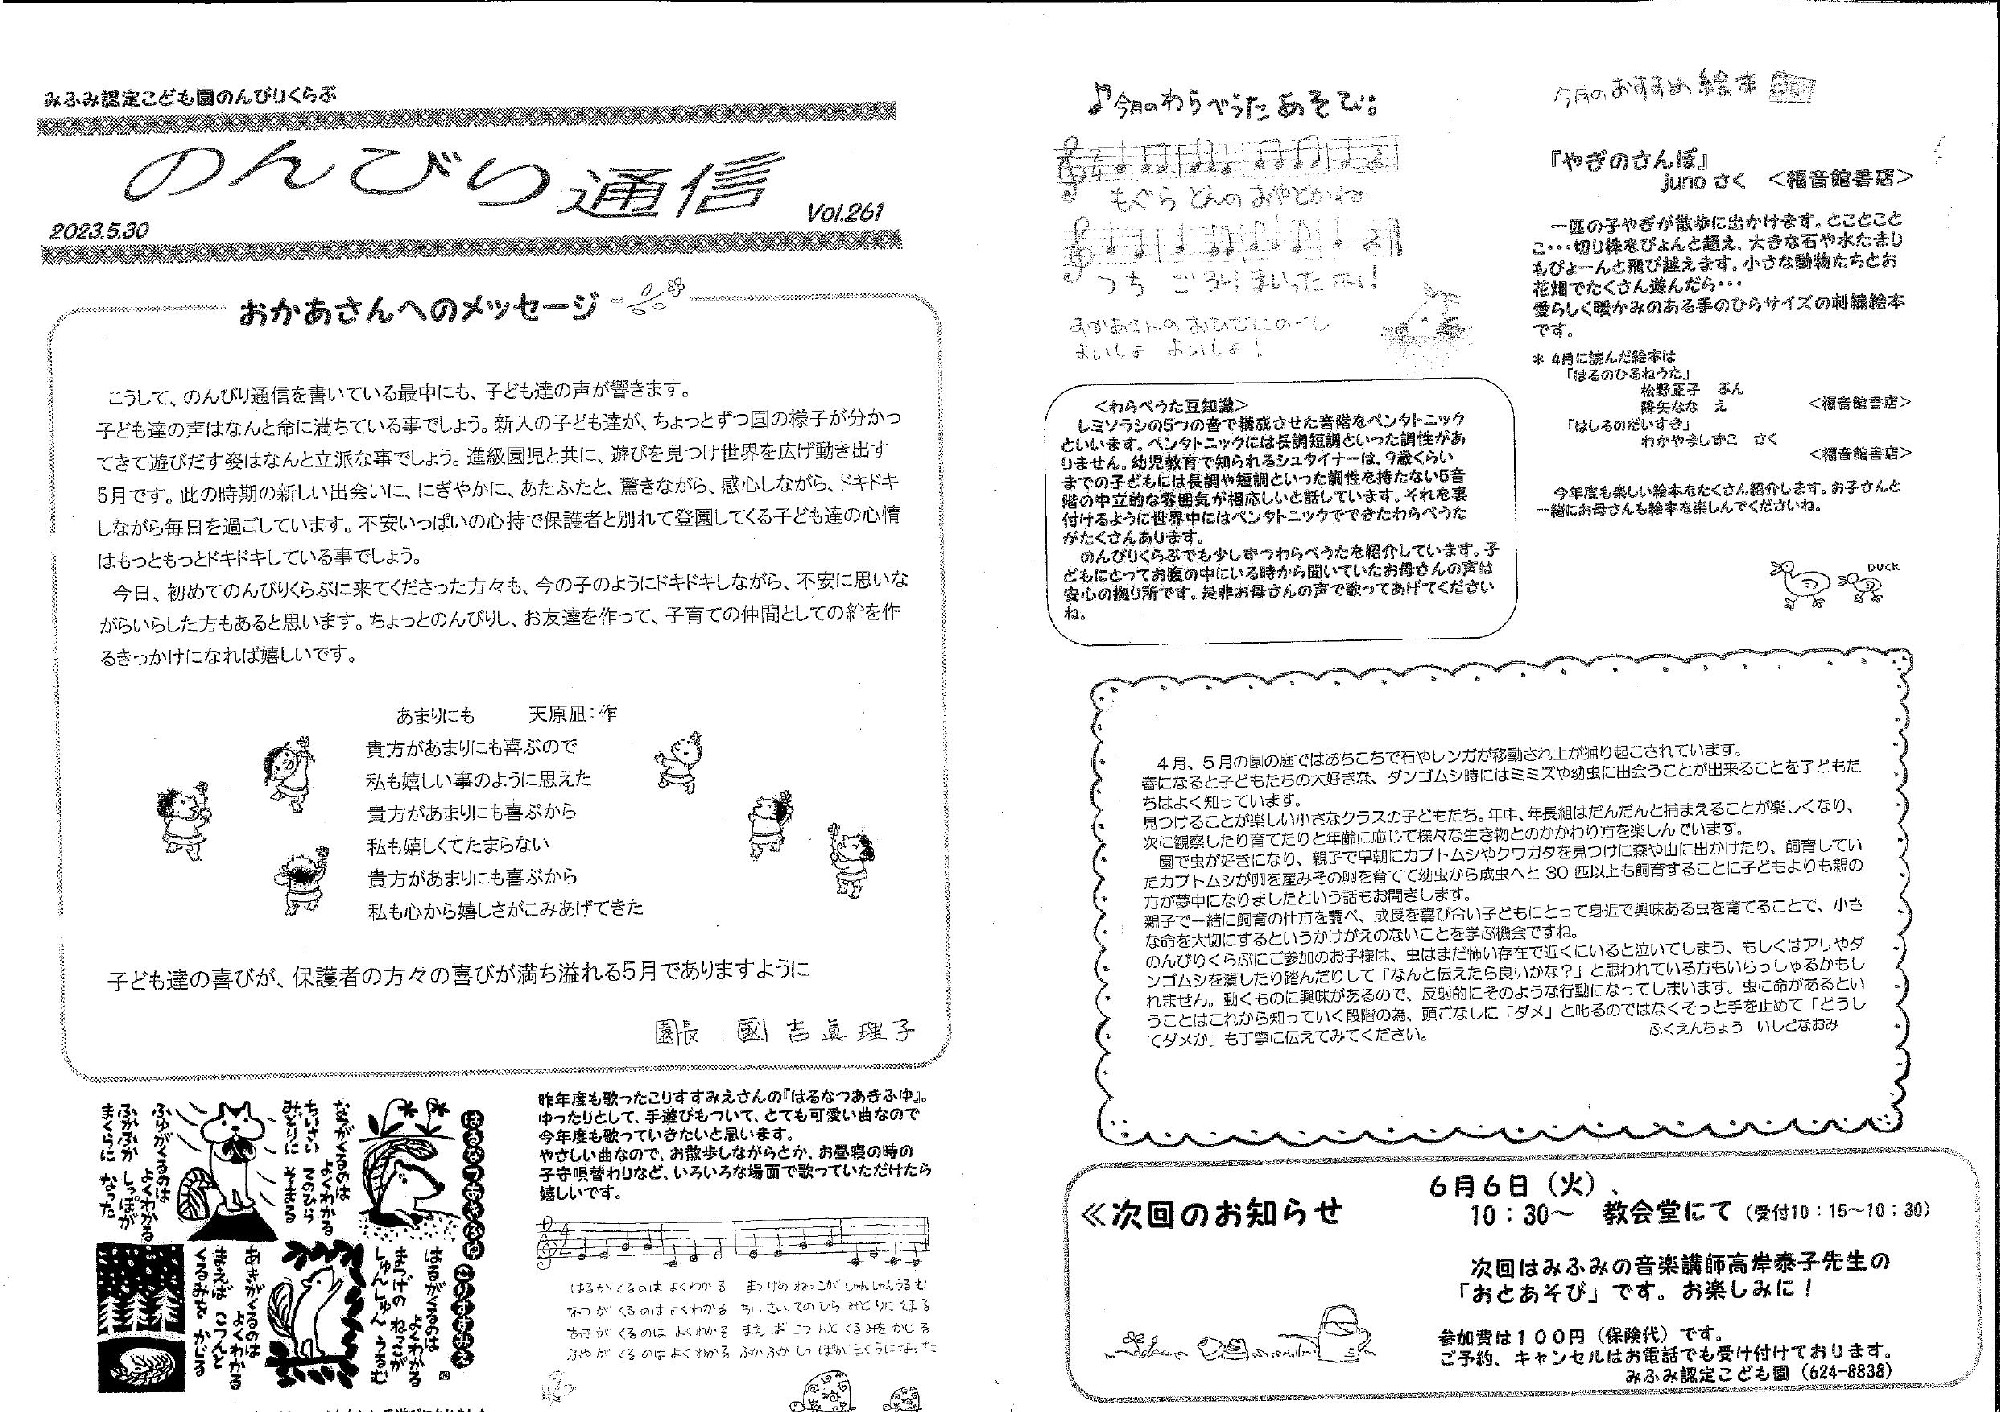 みふみ認定こども園のんびりくらぶ
のんびり通信
2023.5.30
Vol.261
おかあさんへのメッセージ
こうして、のんびり通信を書いている最中にも、子ども達の声が響きます。
子ども達の声はなんと命に満ちている事でしょう。新入の子ども達が、ちょっとずつ園の様子が分かっ
てきて遊びだす姿はなんと立派な事でしょう。進級園児と共に、遊びを見つけ世界を広げ動き出す
5月です。此の時期の新しい出会いに、にぎやかに、あたふたと、驚きながら、感心しながら、ドキドキ
しながら毎日を過ごしています。不安いっぱいの心持で保護者と別れて登園してくる子ども達の心情
はもっともっとドキドキしている事でしょう。
今日、初めてのんびりくらぶに来てくださった方々も、今の子のようにドキドキしながら、不安に思いな
がらいらした方もあると思います。ちょっとのんびりし、お友達を作って、子育ての仲間としての絆を作
るきっかけになれば嬉しいです。
あまりにも 天原凪:作
貴方があまりにも喜ぶので
私も嬉しい事のように思えた
貴方があまりにも喜ぶから
私も嬉しくてたまらない
貴方があまりにも喜ぶから
私も心から嬉しさがこみあげてきた
子ども達の喜びが、保護者の方々の喜びが満ち溢れる5月でありますように
園長 國吉眞理子
なつがくるのは
よくわかる
ちいさい てのひら
みどりに そまる
ふゆがくるのは
よくわかる
ふかふか しっぽが
まくらに なった
はるがくるのは
よくわかる
まつげの ねっこが
しゅんしゅん うるむ
あきがくるのは
よくわかる
まえば こつんと
くるみを かじる
昨年度も歌ったこりすすみえさんの『はるなつあきふゆ』。
ゆったりとして、手遊びもついて、とても可愛い曲なので
今年度も歌っていきたいと思います。
やさしい曲なので、お散歩しながらとか、お昼寝の時の
子守唄替わりなど、いろいろな場面で歌っていただけたら
嬉しいです。
はるがくるのは よくわかる まつげの ねっこが しゅんしゅんうるむ
なつがくるのは よくわかる ちいさいてのひら みどりにそまる
あきがくるのは よくわかる まえばこつんと くるみをかじる
ふゆがくるのは よくわかる ふかふかしっぽが まくらになった
♪今月のわらべうたあそび:
もぐら どんの おやどかね
つち ごろり まいった ホイ!
おかあさんの おひざにのぼし
よいしょ よいしょ!
＜わらべうた豆知識＞
レミソラシの5つの音で構成させた音階をペンタトニック
といいます。ペンタトニックには長調短調といった調性があ
りません。幼児教育で知られるシュタイナーは、9歳くらい
までの子どもには長調や短調といった調性を持たない5音
階の中立的な雰囲気が相応しいと話しています。それを裏
付けるように世界中にはペンタトニックでできたわらべうた
がたくさんあります。
のんびりくらぶでも少しずつわらべうたを紹介しています。子
どもにとってお腹の中にいる時から聞いていたお母さんの声は
安心の拠り所です。是非お母さんの声で歌ってあげてください
ね。
今月のおすすめ絵本
『やぎのさんぽ』
juno さく ＜福音館書店＞
一匹の子やぎが散歩に出かけます。とことこと
こ・・・切り株をぴょんと超え、大きな石や水たまり
もぴょーんと飛び越えます。小さな動物たちとお
花畑でたくさん遊んだら・・・
愛らしく暖かみのある手のひらサイズの刺繍絵本
です。
＊ 4月に読んだ絵本は
「はるのひるねうた」
松野正子 ぶん
降矢なな え ＜福音館書店＞
「はしるのだいすき」
わかやましずこ さく
＜福音館書店＞
今年度も楽しい絵本をたくさん紹介します。お子さんと
一緒にお母さんも絵本を楽しんでくださいね。
DUCK
4月、5月の園の庭ではあちこちで石やレンガが移動され土が掘り起こされています。
春になると子どもたちの大好きな、ダンゴムシ時にはミミズや幼虫に出会うことが出来ることを子どもた
ちはよく知っています。
見つけることが楽しい小さなクラスの子どもたち。年中、年長組はだんだんと捕まえることが楽しくなり、
次に観察したり育てたりと年齢に応じて様々な生き物とのかかわり方を楽しんでいます。
園で虫が好きになり、親子で早朝にカブトムシやクワガタを見つけに森や山に出かけたり、飼育してい
たカブトムシが卵を産みその卵を育てて幼虫から成虫へと30匹以上も飼育することに子どもよりも親の
方が夢中になりましたという話もお聞きします。
親子で一緒に飼育の仕方を調べ、成長を喜び合い子どもにとって身近で興味ある虫を育てることで、小さ
な命を大切にするというかけがえのないことを学ぶ機会ですね。
のんびりくらぶにご参加のお子様は、虫はまだ怖い存在で近くにいると泣いてしまう、もしくはアリやダ
ンゴムシを潰したり踏んだりして「なんと伝えたら良いかな？」と思われている方もいらっしゃるかもし
れません。動くものに興味があるので、反射的にそのような行動になってしまいます。虫に命があるとい
うことはこれから知っていく段階の為、頭ごなしに「ダメ」と叱るのではなくそっと手を止めて「どうし
てダメか」も丁寧に伝えてみてください。
ふくえんちょう いしどなおみ
≪次回のお知らせ
6月6日（火）、
10：30～ 教会堂にて（受付10：15～10：30）
次回はみふみの音楽講師高岸泰子先生の
「おとあそび」です。お楽しみに！
参加費は１００円（保険代）です。
ご予約、キャンセルはお電話でも受け付けております。
みふみ認定こども園（624-8838）